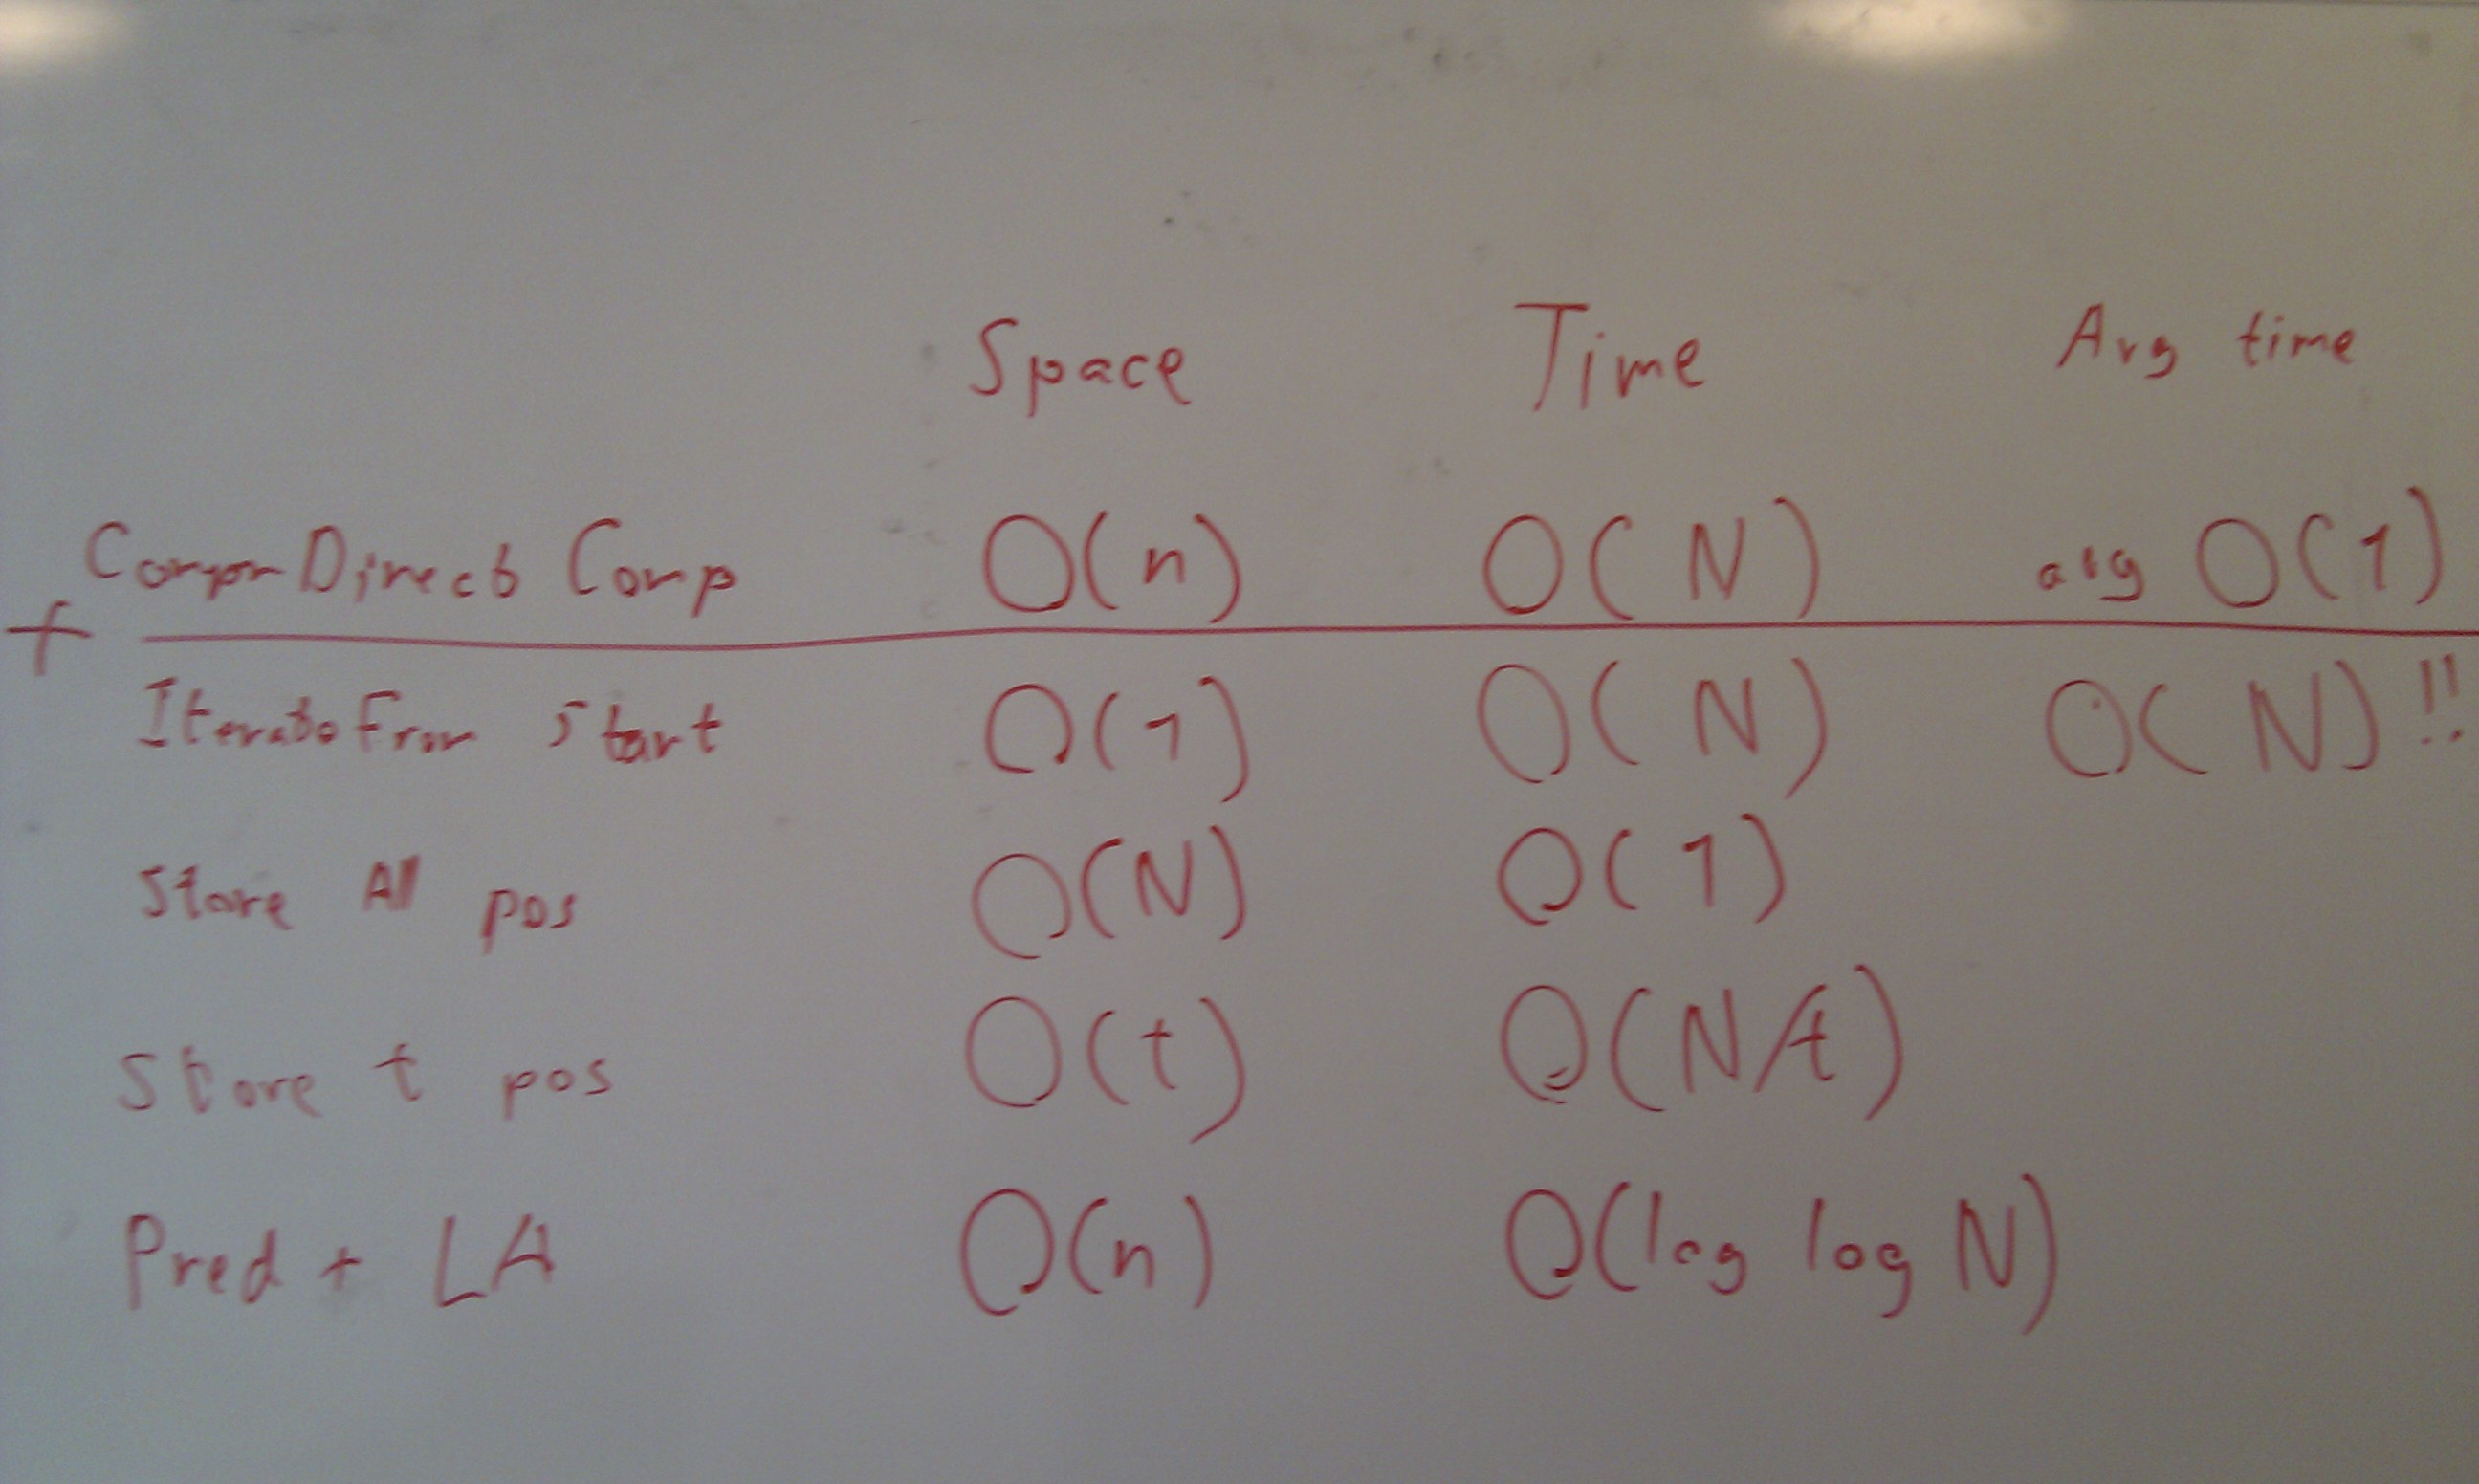 Space Time Avg time
Direct Comp O(n) O(N) avg O(1)
+
Iterate From Start O(1) O(N) O(N)!!
Store All pos O(N) O(1)
Store t pos O(t) O(N/t)
Pred + LA O(n) O(log log N)